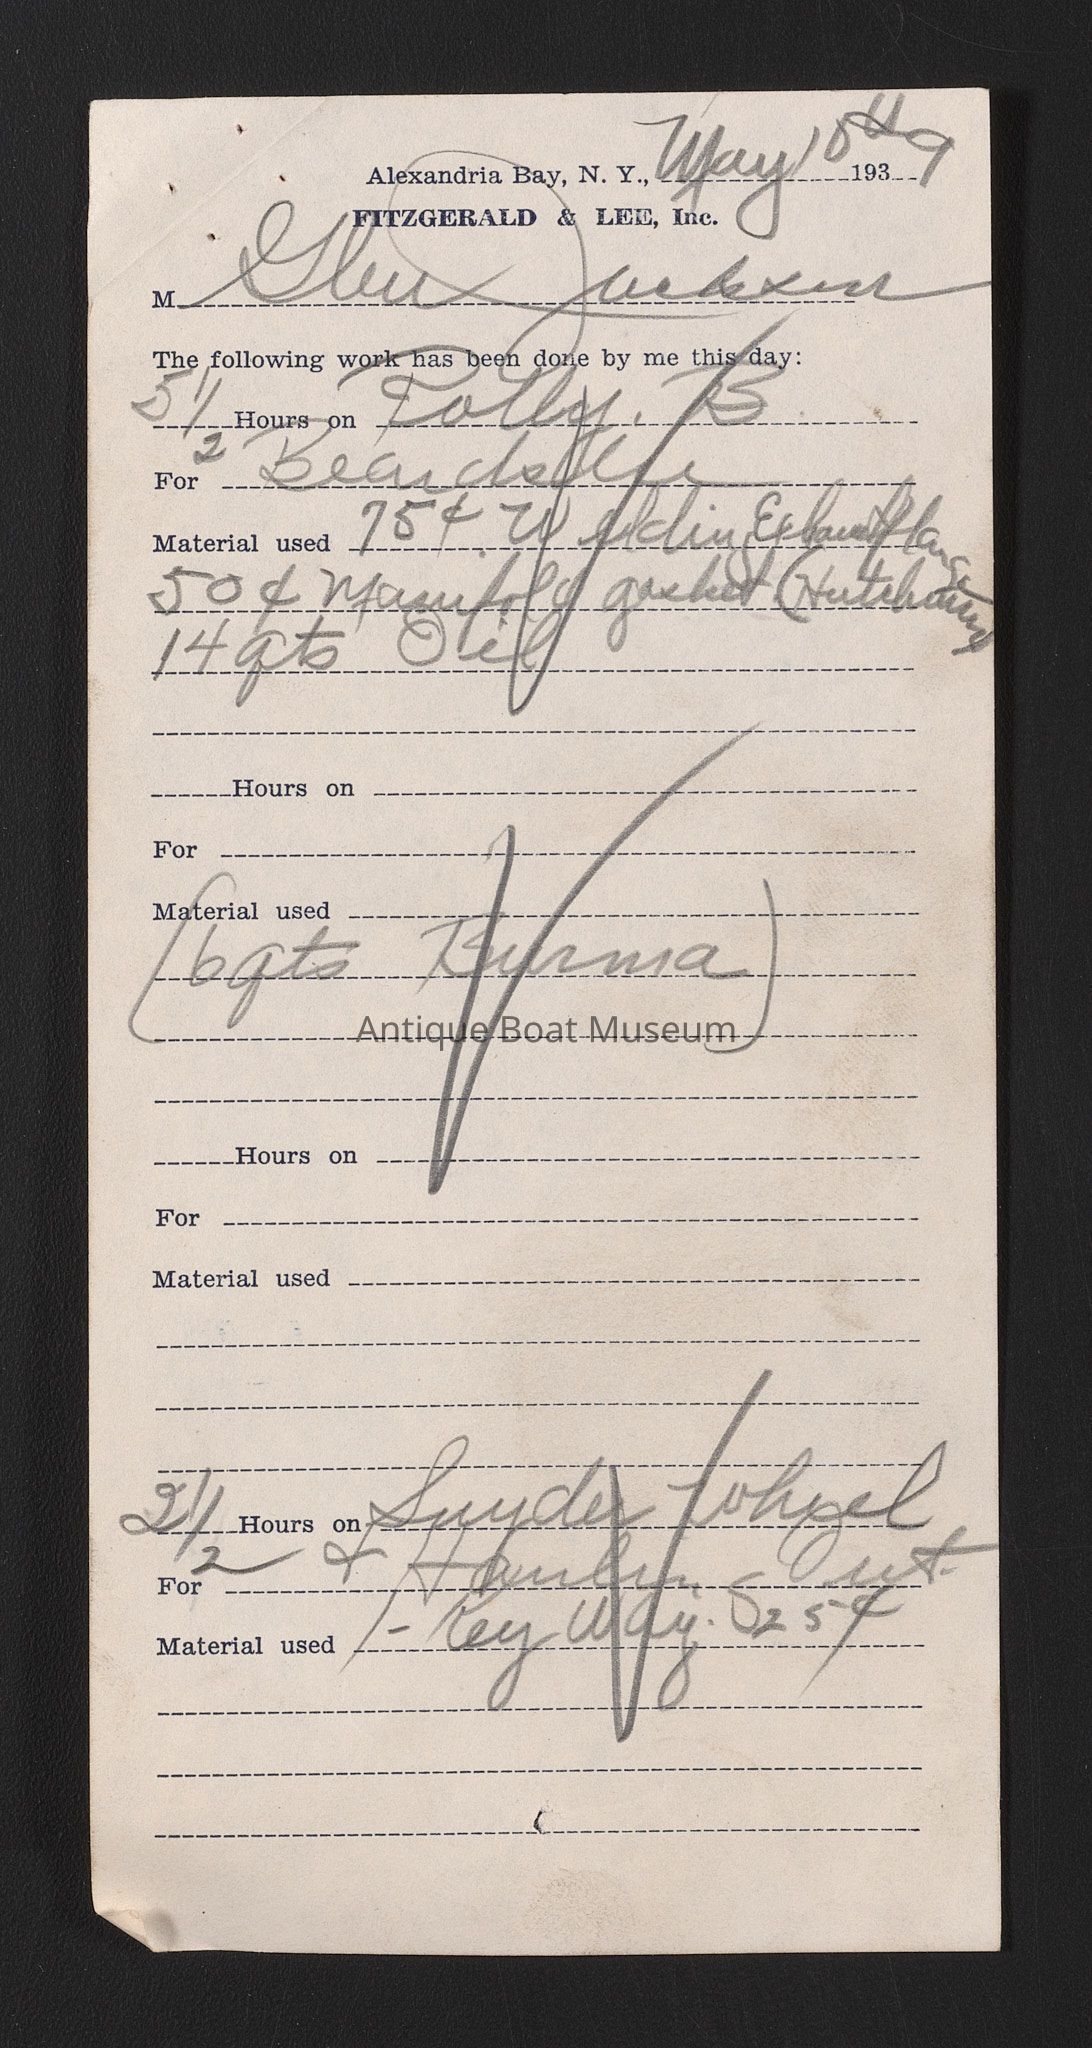 Alexandria Bay, N. Y., May 18th 1939
FITZGERALD & LEE, Inc.
M Glen Jackson
The following work has been done by me this day:
5 1/2 Hours on Polly. B.
For Beardslee
Material used 75¢. Welding Exhaust flange
50¢ Manifold gasket (Hutchinson)
14 qts Oil
Hours on
For
Material used
(6 qts Burma)
Antique Boat Museum
Hours on
For
Material used
2 1/2 Hours on Snyder
For & Out.
Material used 1 - Key Way. 25¢